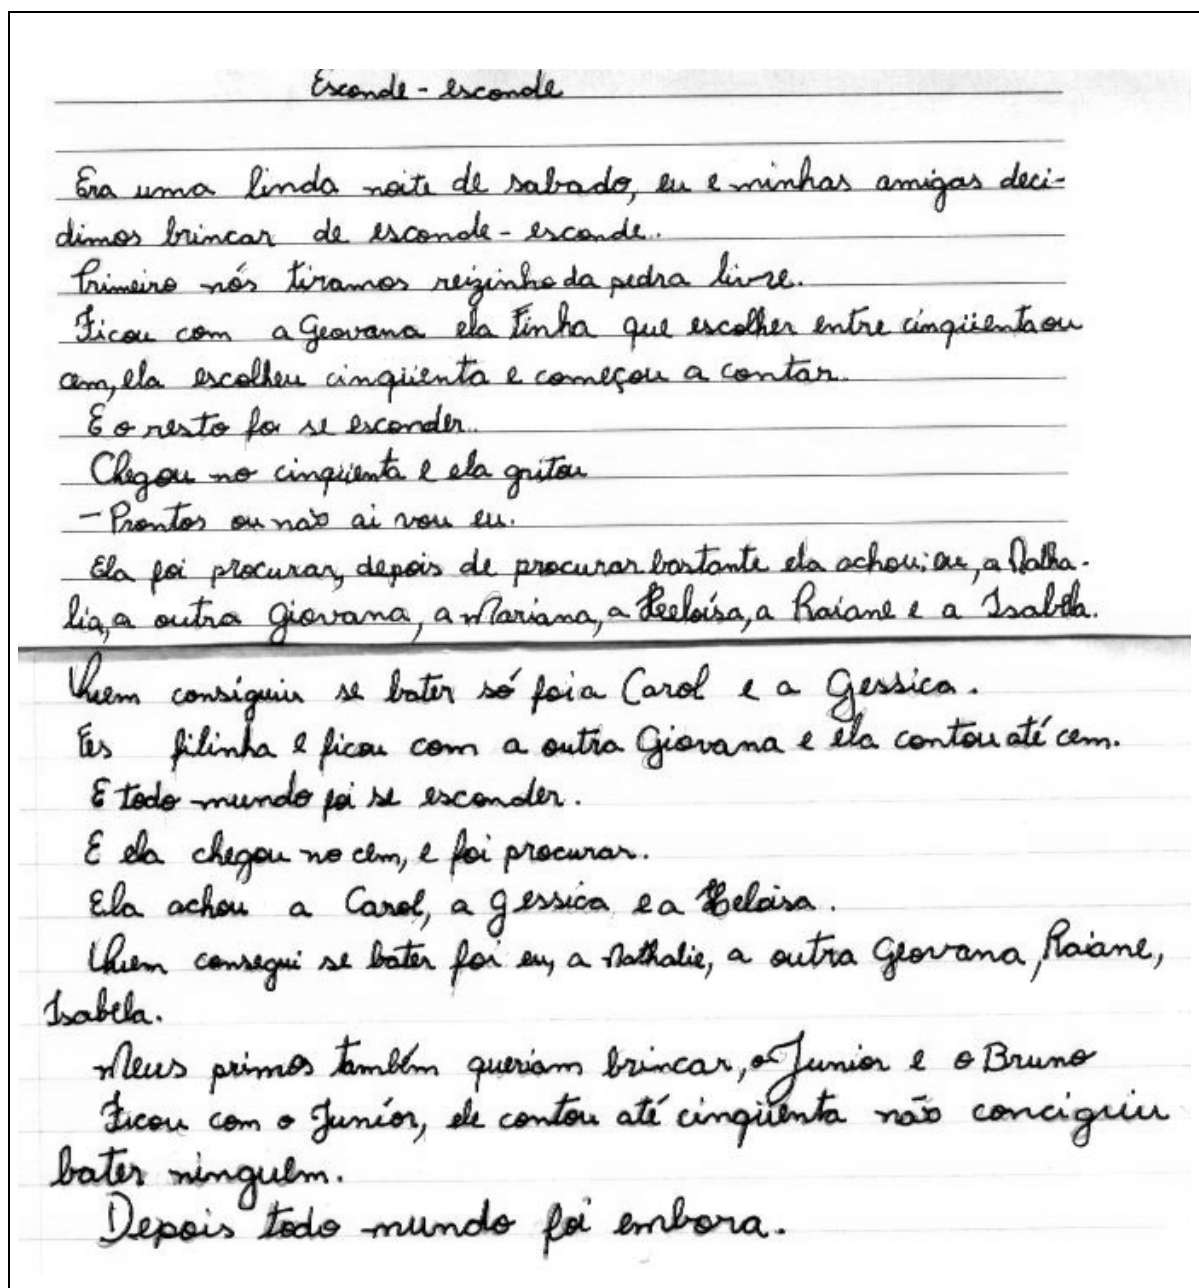 Esconde - esconde
Era uma linda noite de sabado, eu e minhas amigas deci-
dimos brincar de esconde - esconde.
Primeiro nós tiramos reizinho da pedra livre.
Ficou com a Geovana ela tinha que escolher entre cinqüenta ou
cem, ela escolheu cinqüenta e começou a contar.
E o resto foi se esconder.
Chegou no cinqüenta e ela gritou
- Prontos ou não ai vou eu.
Ela foi procurar, depois de procurar bastante ela achou: eu, a Natha-
lia, a outra Giovana, a Mariana, a Heeloísa, a Raiane e a Isabela.
Quem consiguiu se bater só foi a Carol e a Gessica.
Fes filinha e ficou com a outra Giovana e ela contou até cem.
E todo mundo foi se esconder.
E ela chegou no cem, e foi procurar.
Ela achou a Carol, a gessica e a Heloisa.
Quem consegui se bater foi eu, a Nathalie, a outra Geovana, Raiane,
Isabela.
Meus primos também queriam brincar, o Junior e o Bruno
Ficou com o Juniór, ele contou até cinqüenta não conciguiu
bater ninguém.
Depois todo mundo foi embora.